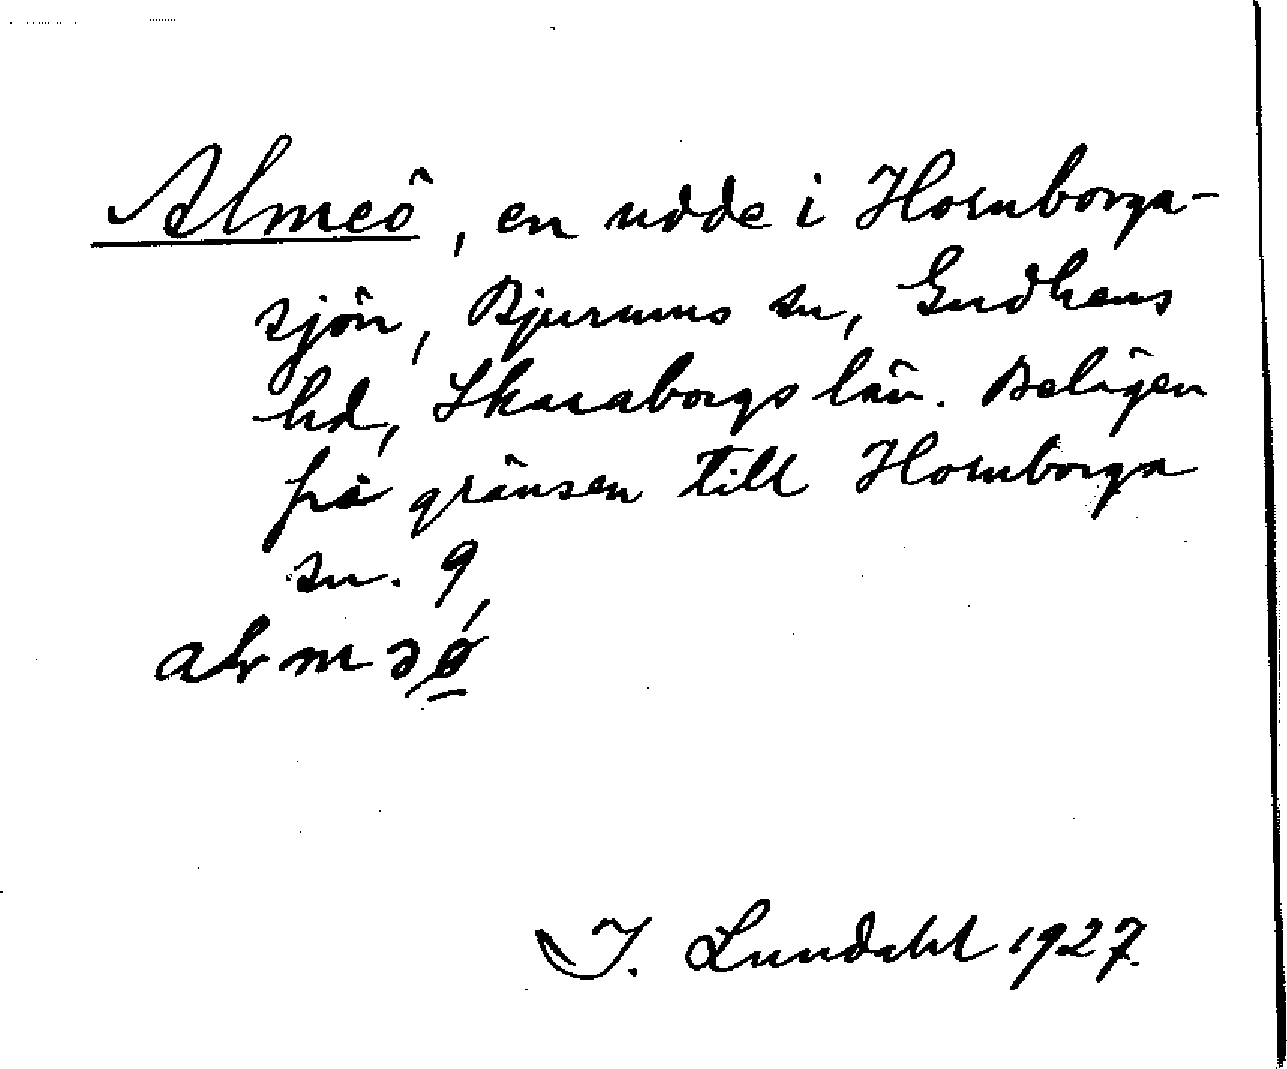 Almeö, en udde i Hornborga-
sjön, Bjurums sn, Gudhems
hd, Skaraborgs län. Belägen
på gränsen till Hornborga
sn. 9
I. Lundahl 1927.